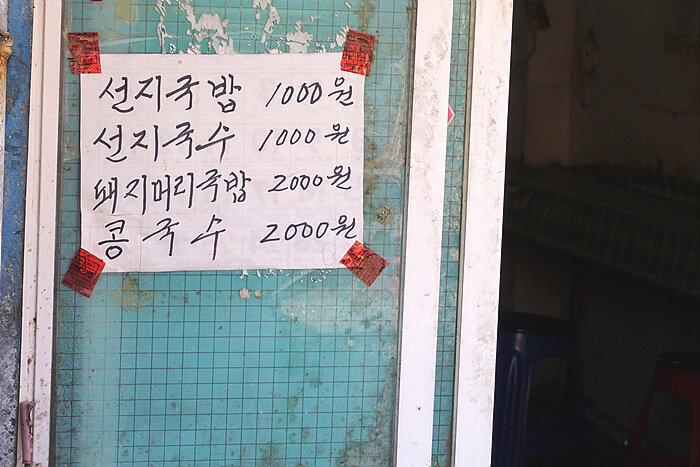 선지국밥 1000원
선지국수 1000원
돼지머리국밥 2000원
콩국수 2000원